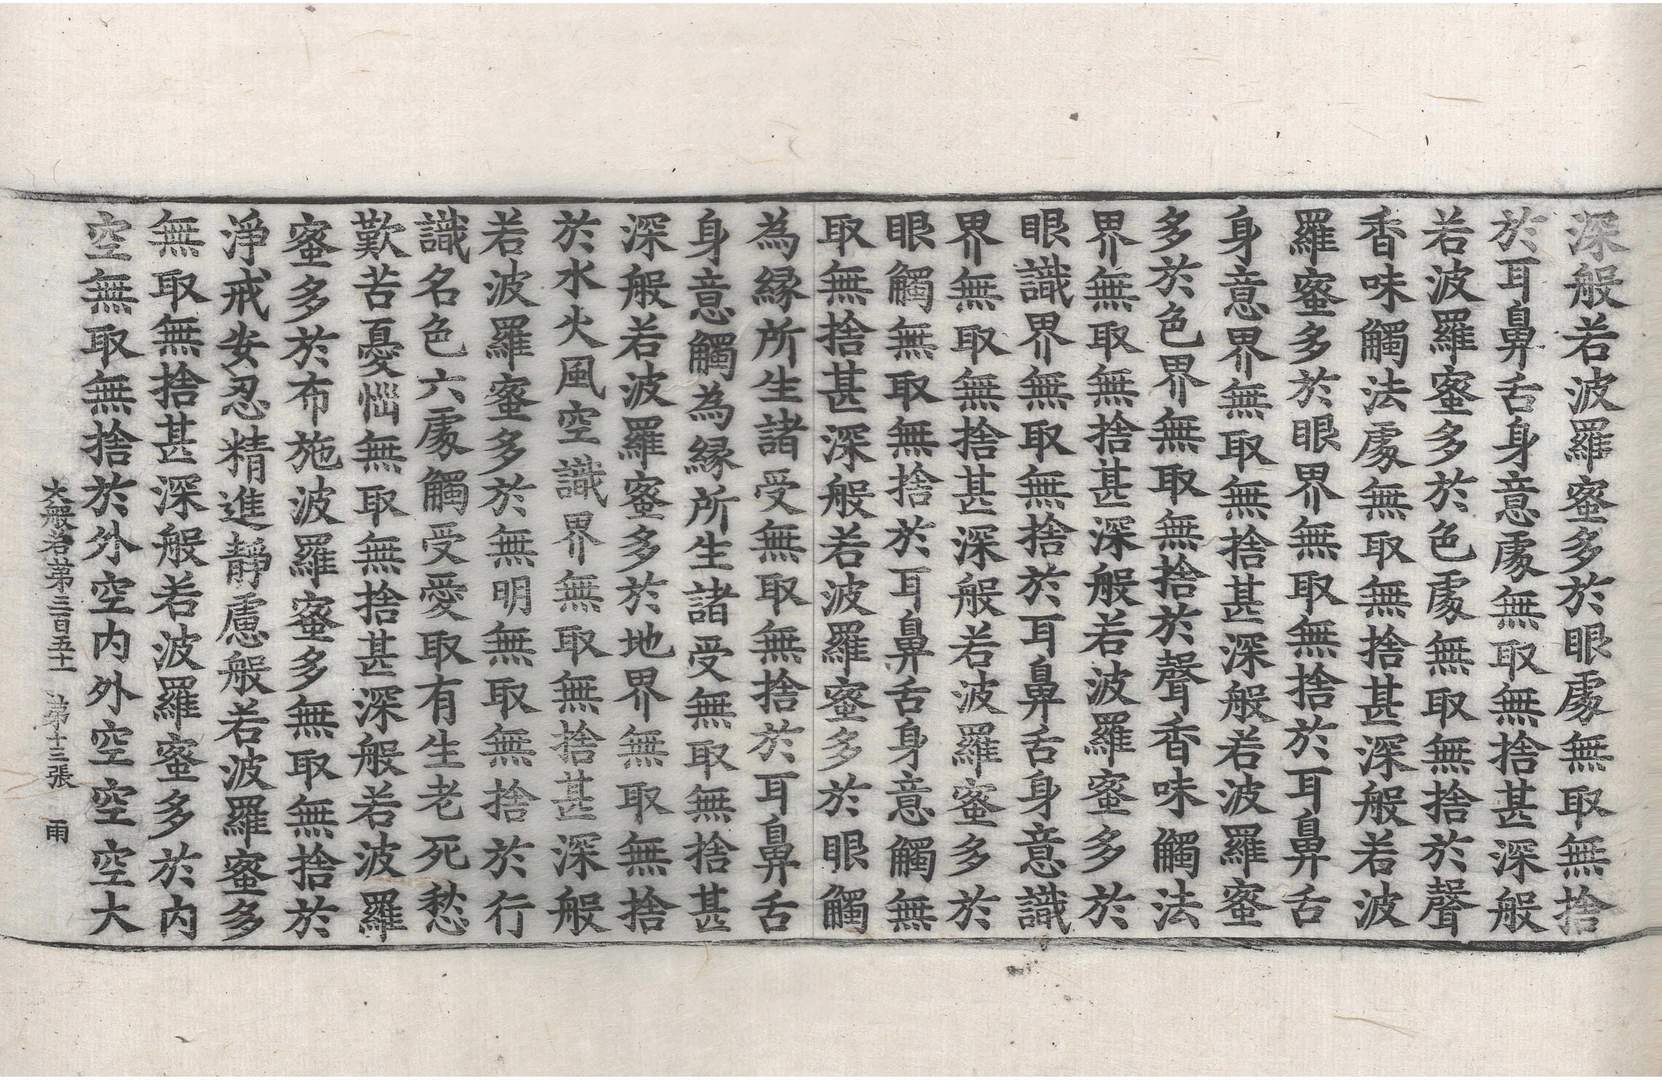 深般若波羅蜜多於眼處無取無捨
於耳鼻舌身意處無取無捨甚深般
若波羅蜜多於色處無取無捨於聲
香味觸法處無取無捨甚深般若波
羅蜜多於眼界無取無捨於耳鼻舌
身意界無取無捨甚深般若波羅蜜
多於色界無取無捨於聲香味觸法
界無取無捨甚深般若波羅蜜多於
眼識界無取無捨於耳鼻舌身意識
界無取無捨甚深般若波羅蜜多於
眼觸無取無捨於耳鼻舌身意觸無
取無捨甚深般若波羅蜜多於眼觸
為緣所生諸受無取無捨於耳鼻舌
身意觸為緣所生諸受無取無捨甚
深般若波羅蜜多於地界無取無捨
於水火風空識界無取無捨甚深般
若波羅蜜多於無明無取無捨於行
識名色六處觸受愛取有生老死愁
歎苦憂惱無取無捨甚深般若波羅
蜜多於布施波羅蜜多無取無捨於
淨戒安忍精進靜慮般若波羅蜜多
無取無捨甚深般若波羅蜜多於內
空無取無捨於外空內外空空空大
大般若第三百五十一 第十三張 雨